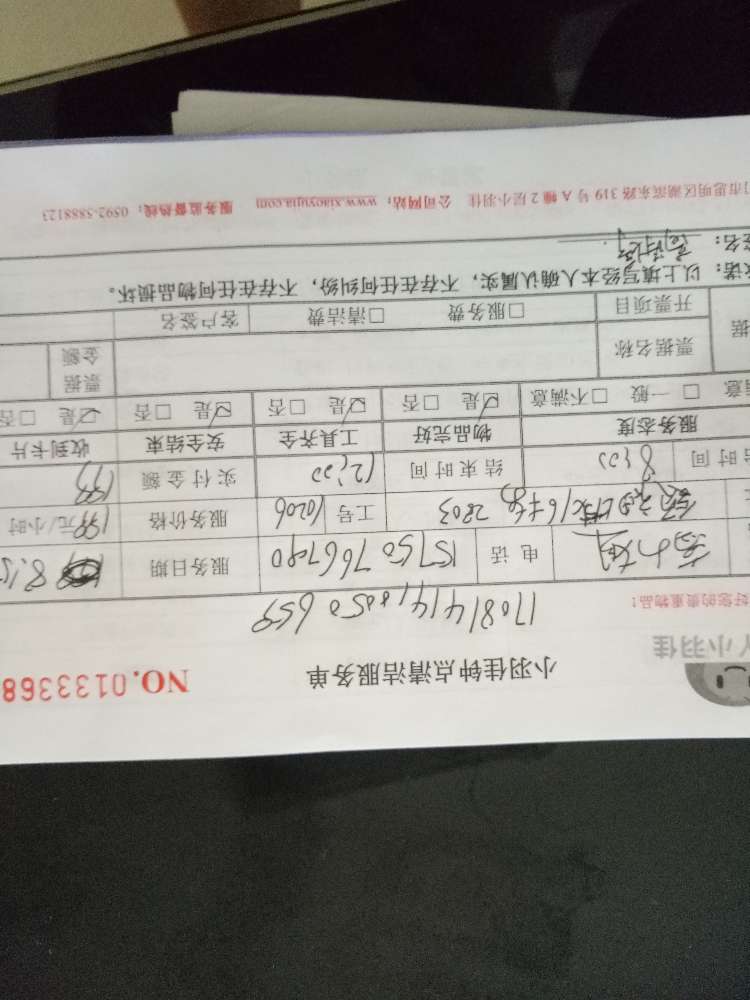 小羽佳
小羽佳钟点清洁服务单
NO.0133368
好您的贵重物品!
170814141805 0659
电话 15750766790 服务日期 8.15
2803 工号 10206 服务价格 199元/小时
时间 8:00 结束时间 12:00 实付金额 199
服务态度 物品完好 工具齐全 安全结束 收到卡片
意 □ 一般 □ 不满意 ☑是 □否 ☑是 □否 ☑是 □否 ☑是 □否
据 票据名称 票据金额
开票项目 □服务费 □清洁费 客户签名
诺: 以上填写经本人确认属实,不存在任何纠纷,不存在任何物品损坏。
签名:
门市思明区湖滨东路 319 号 A 幢 2 层小羽佳 公司网站: www.xiaoyujia.com 服务监督热线: 0592-5888123